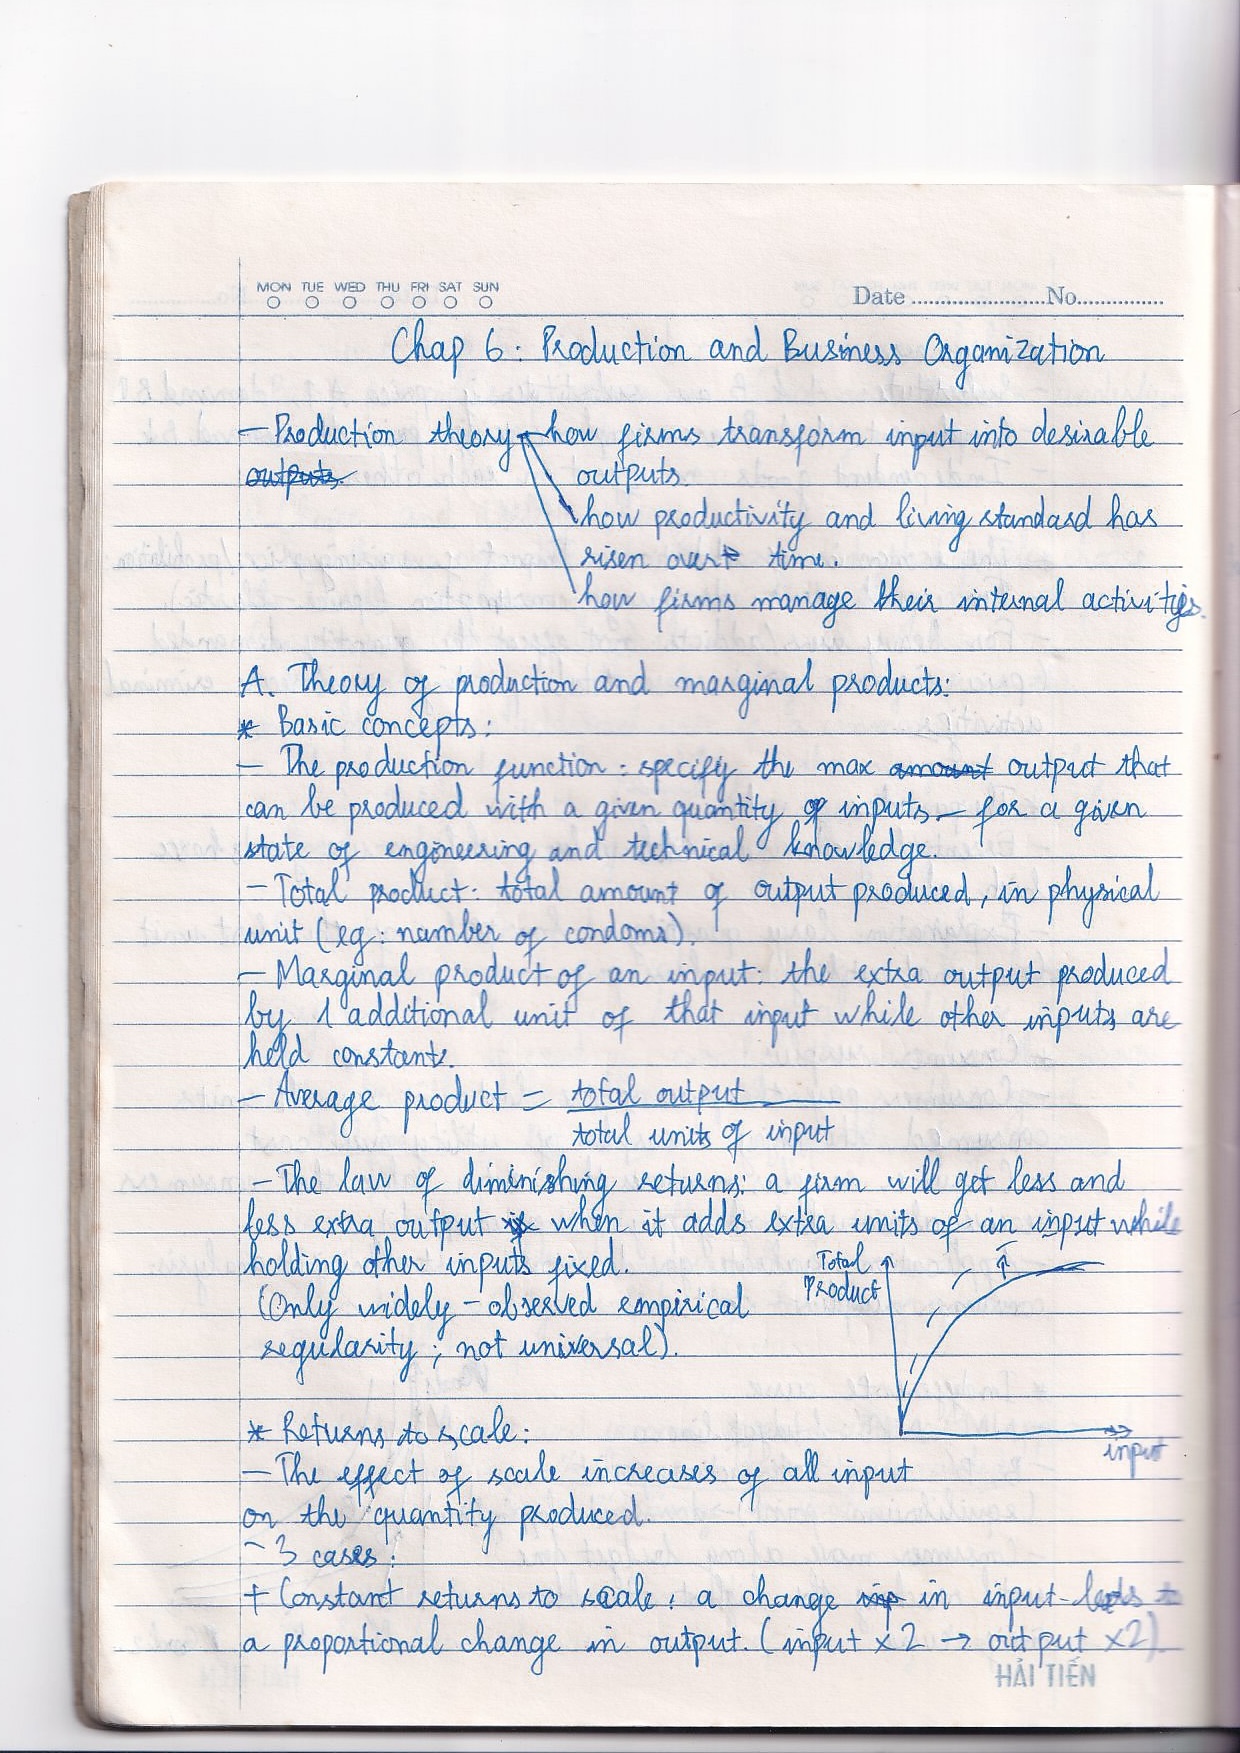 MON TUE WED THU FRI SAT SUN
Date ......................No...............
Chap 6 : Production and Business Organization
- Production theory how firms transform input into desirable
outputs. outputs.
how productivity and living standard has
risen over time.
how firms manage their internal activities.
A. Theory of production and marginal products:
* Basic concepts:
- The production function : specify the max amount output that
can be produced with a given quantity of inputs - for a given
state of engineering and technical knowledge.
- Total product: total amount of output produced, in physical
unit (eg: number of condoms).
- Marginal product of an input: the extra output produced
by 1 additional unit of that input while other inputs are
held constants.
- Average product = total output
total units of input
- The law of diminishing returns: a firm will get less and
less extra output if when it adds extra units of an input while
holding other inputs fixed.
(Only widely-observed empirical
regularity ; not universal).
Total
Product
input
* Returns to scale:
- The effect of scale increases of all input
on the quantity produced.
- 3 cases:
+ Constant returns to scale: a change inp in input leads to
a proportional change in output. (input x2 → output x2).
HẢI TIẾN